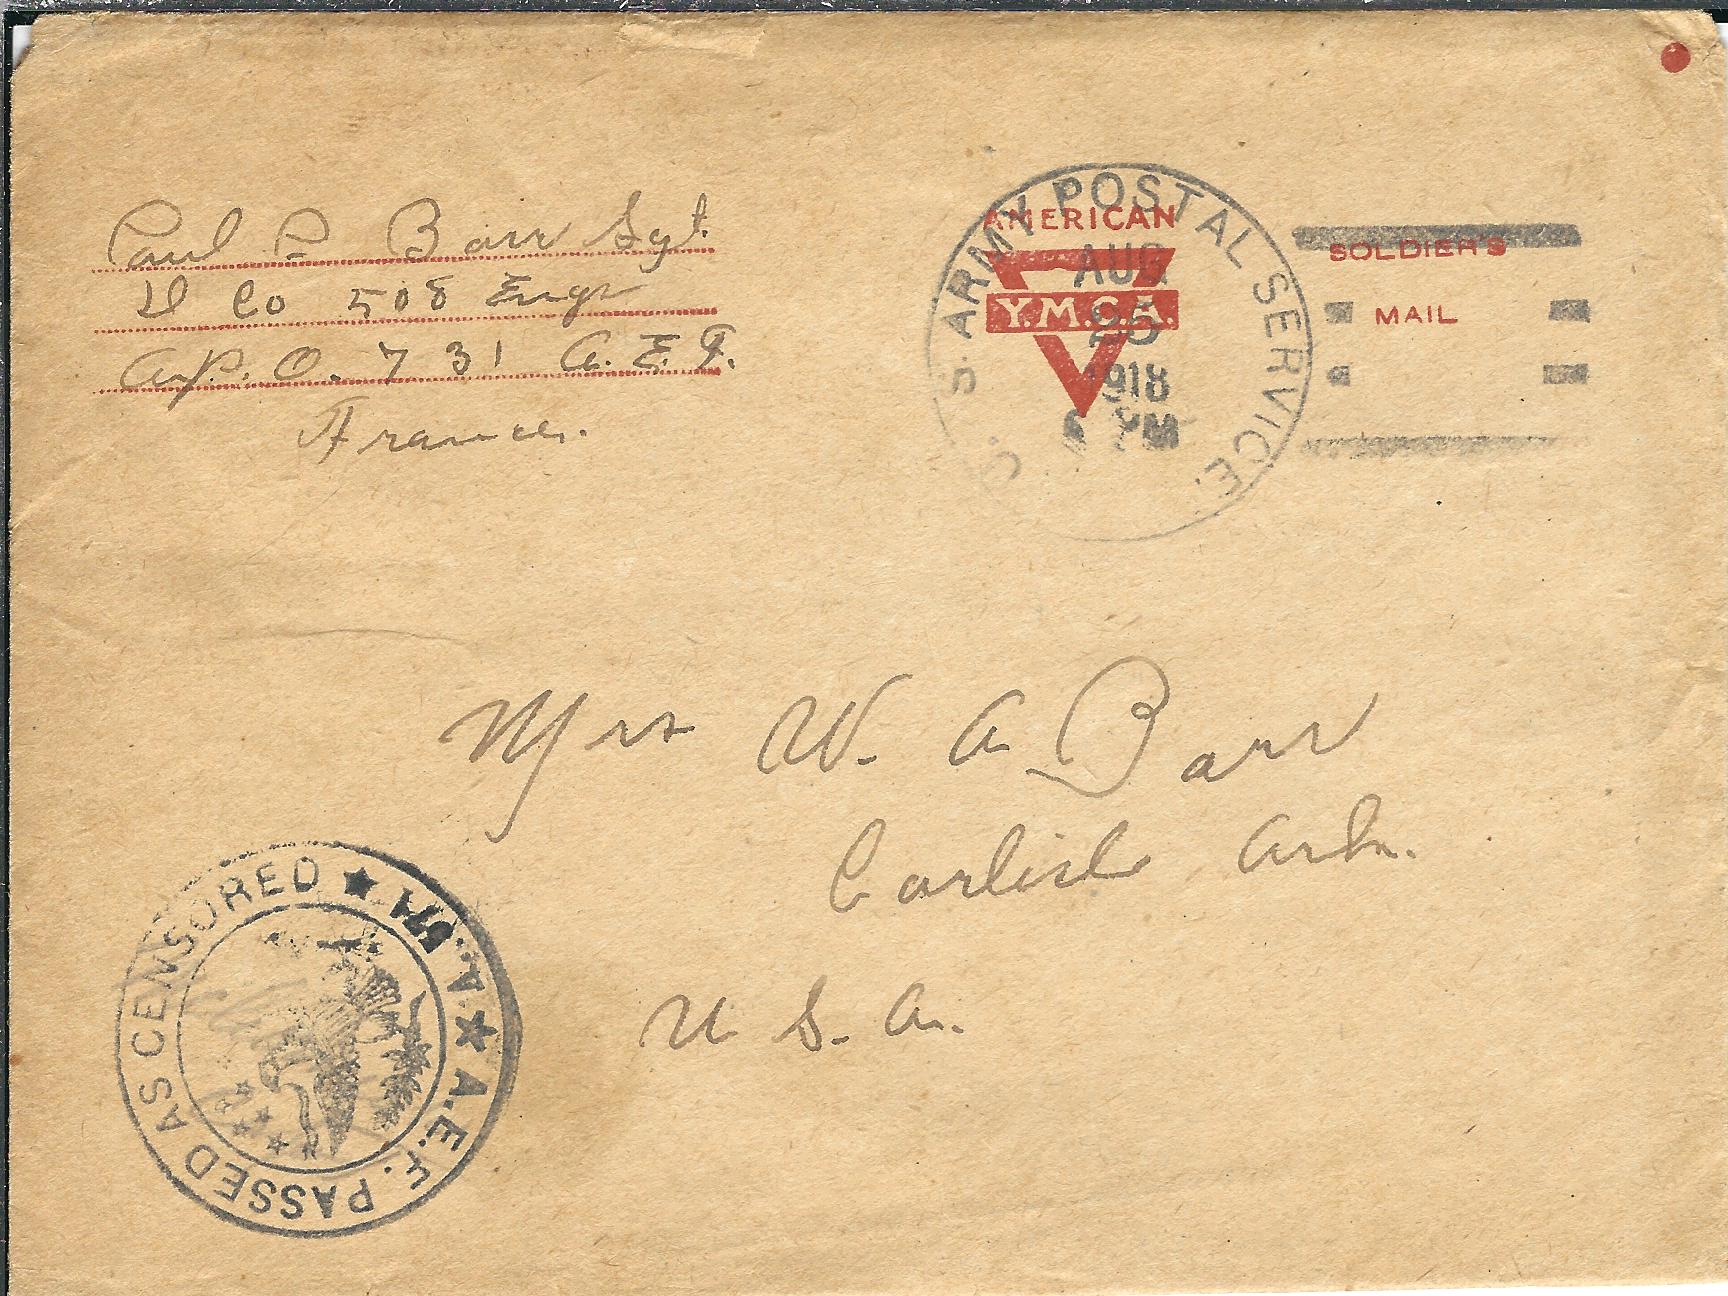 Paul P Barr Sgt.
D Co 508 Engr
A.P.O. 731 A.E.F.
France.
U. S. ARMY POSTAL SERVICE.
AUG
25
1918
PM
AMERICAN
Y.M.C.A.
SOLDIER'S
MAIL
Mrs W. A Barr
Carlisle Ark.
U. S. A.
A.E.F. PASSED AS CENSORED ★ A. ★